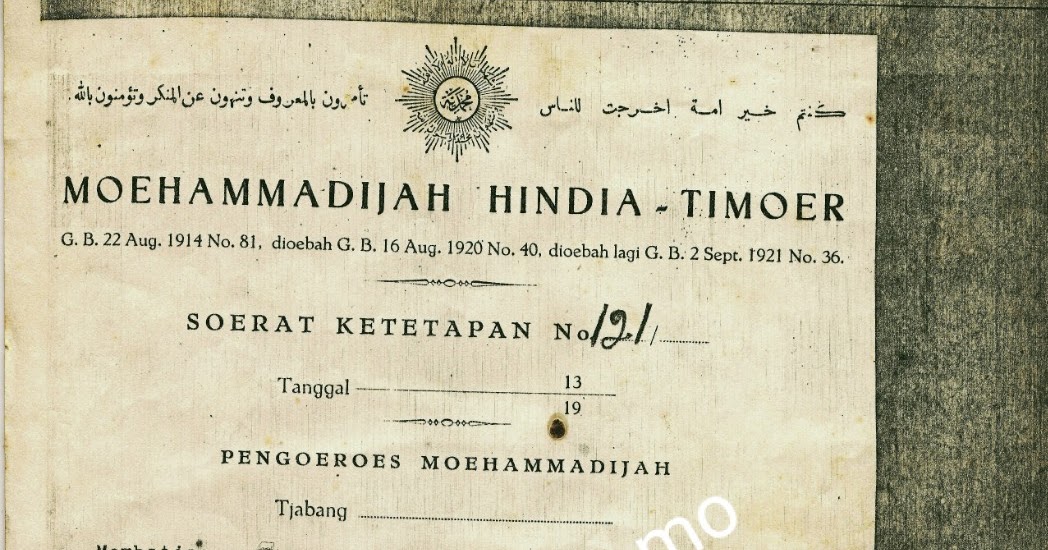 كنتم خير امة اخرجت للناس تأمرون بالمعروف وتنهون عن المنكر وتؤمنون بالله.
محمدية
MOEHAMMADIJAH HINDIA - TIMOER
G. B. 22 Aug. 1914 No. 81, dioebah G. B. 16 Aug. 1920 No. 40, dioebah lagi G. B. 2 Sept. 1921 No. 36.
SOERAT KETETAPAN No. 121/
Tanggal 13
19
PENGOEROES MOEHAMMADIJAH
Tjabang
mo